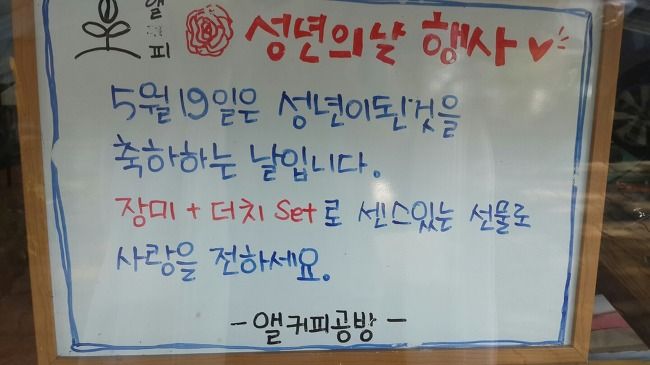 앨커피
성년의날 행사
5월 19일은 성년이된것을
축하하는 날입니다.
장미 + 더치 Set로 센스있는 선물로
사랑을 전하세요.
- 앨커피공방 -